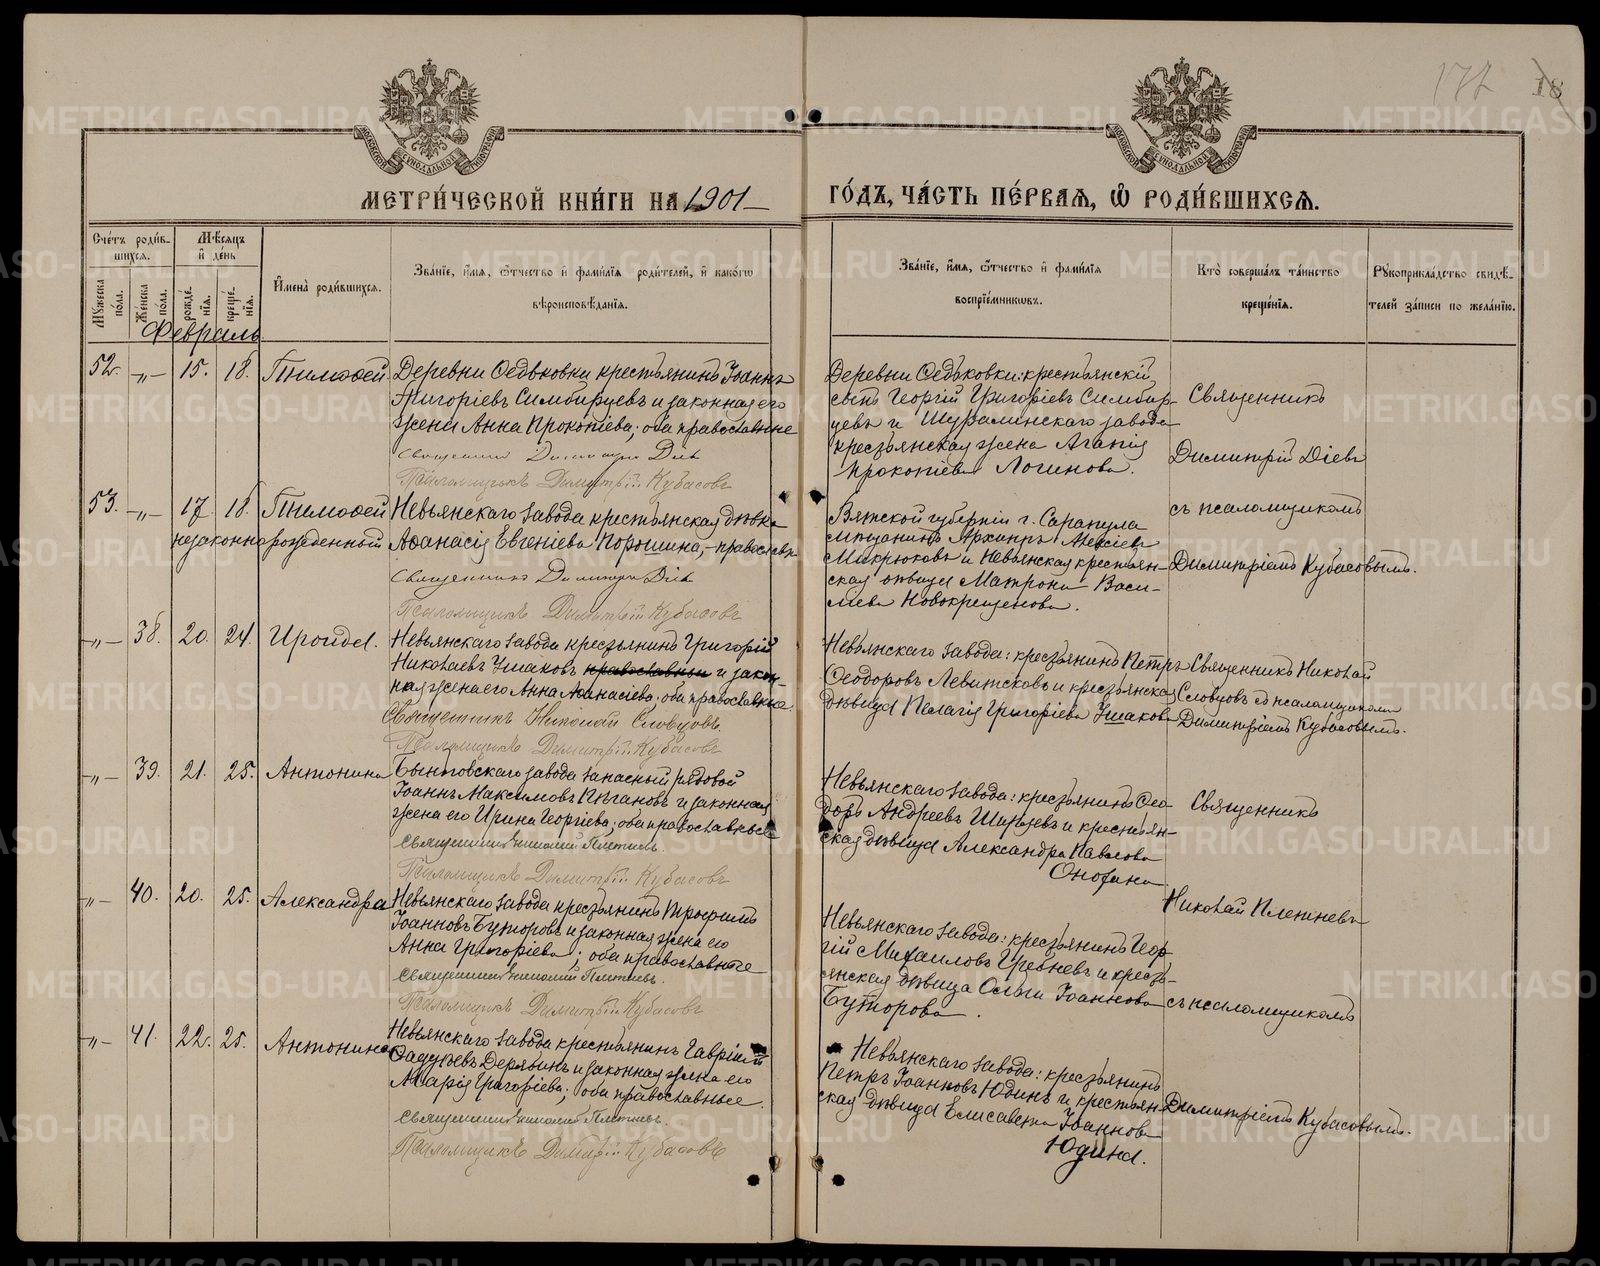 172 18
МЕТРИ́ЧЕСКОЙ КНИ́ГИ НА 1901 ГО́ДЪ, ЧА́СТЬ ПЕ́РВАѦ, Ѡ҆ РОДИ́ВШИХСѦ.
Сче́тъ роди́в-
шихсѧ.
Мꙋжеска
по́ла.
Же́нска
по́ла.
Мѣ́сѧцъ
и҆ де́нь
рожде́-
нїѧ.
креще́-
нїѧ.
И҆мена̀ роди́вшихсѧ.
Зва́нїе, и҆́мѧ, ѻ҆́тчество и҆ фами́лїѧ роди́телей, и҆ како́гѡ
вѣроисповѣ́данїѧ.
Зва́нїе, и҆́мѧ, ѻ҆́тчество и҆ фами́лїѧ
воспрїе́мникѡвъ.
Кто̀ соверша́лъ та́инство
креще́нїѧ.
Рꙋкоприкла́дство свидѣ́-
телей за́писи по жела́нїю.
Февраль
52. -„- 15. 18. Тимоѳей.
Деревни Ѳедьковки крестьянинъ Іоаннъ
Григоріевъ Симбирцевъ и законная его
жена Анна Прокопіева; оба православные
Священникъ Димитрій Діевъ
Псаломщикъ Димитрій Кубасовъ
Деревни Ѳедьковки: крестьянскій
сынъ Георгій Григоріевъ Симбир-
цевъ и Шуралинскаго завода
крестьянская жена Агапія
Прокопіева Логинова.
Священникъ
Димитрій Діевъ
53. -„- 17. 18. Тимоѳей
незаконнорожденный
Невьянскаго завода крестьянская дѣвка
Аѳанасія Евгеніева Порошина, православн.
Священникъ Димитрій Діевъ
Псаломщикъ Димитрій Кубасовъ
Вятской губерніи г. Сарапула
мѣщанинъ Архипъ Алексіевъ
Микрюковъ и Невьянская крестьян-
ская дѣвица Матрона Васи-
лева Новокрещенова.
съ псаломщикомъ
Димитріемъ Кубасовымъ.
-„- 38. 20. 24. Ираида.
Невьянскаго завода крестьянинъ Григорій
Николаевъ Ушаковъ православные и закон-
ная жена его Анна Аѳанасіева; оба православные.
Священникъ Николай Словцовъ.
Псаломщикъ Димитрій Кубасовъ
Невьянскаго завода: крестьянинъ Петръ
Ѳеодоровъ Левитсковъ и крестьянская
дѣвица Пелагія Григоріева Ушакова
Священникъ Николай
Словцовъ съ псаломщикомъ
Димитріемъ Кубасовымъ.
-„- 39. 21. 25. Антонина
Быньговскаго завода запасный рядовой
Іоаннъ Максимовъ Пѣгановъ и законная
жена его Ирина Георгіева; оба православные
Священникъ Николай Плетневъ.
Псаломщикъ Димитрій Кубасовъ
Невьянскаго завода: крестьянинъ Ѳео-
доръ Андреевъ Ширяевъ и крестьян-
ская дѣвица Александра Павлова
Онохина
Священникъ
-„- 40. 20. 25. Александра
Невьянскаго завода крестьянинъ Трофимъ
Іоанновъ Буторовъ и законная жена его
Анна Григоріева; оба православные
Священникъ Николай Плетневъ.
Псаломщикъ Димитрій Кубасовъ
Невьянскаго завода: крестьянинъ Геор-
гій Михаиловъ Гребневъ и кресть-
янская дѣвица Ольга Іоаннова
Буторова.
Николай Плетневъ
съ псаломщикомъ
-„- 41. 22. 25. Антонина
Невьянскаго завода крестьянинъ Гавріилъ
Ѳаддѣевъ Дерябинъ и законная жена его
Марія Григоріева; оба православные.
Священникъ Николай Плетневъ.
Псаломщикъ Димитрій Кубасовъ
Невьянскаго завода: крестьянинъ
Петръ Іоанновъ Юдинъ и крестьян-
ская дѣвица Елисавета Іоаннова
Юдина.
Димитріемъ Кубасовымъ.
METRIKI.GASO-URAL.RU